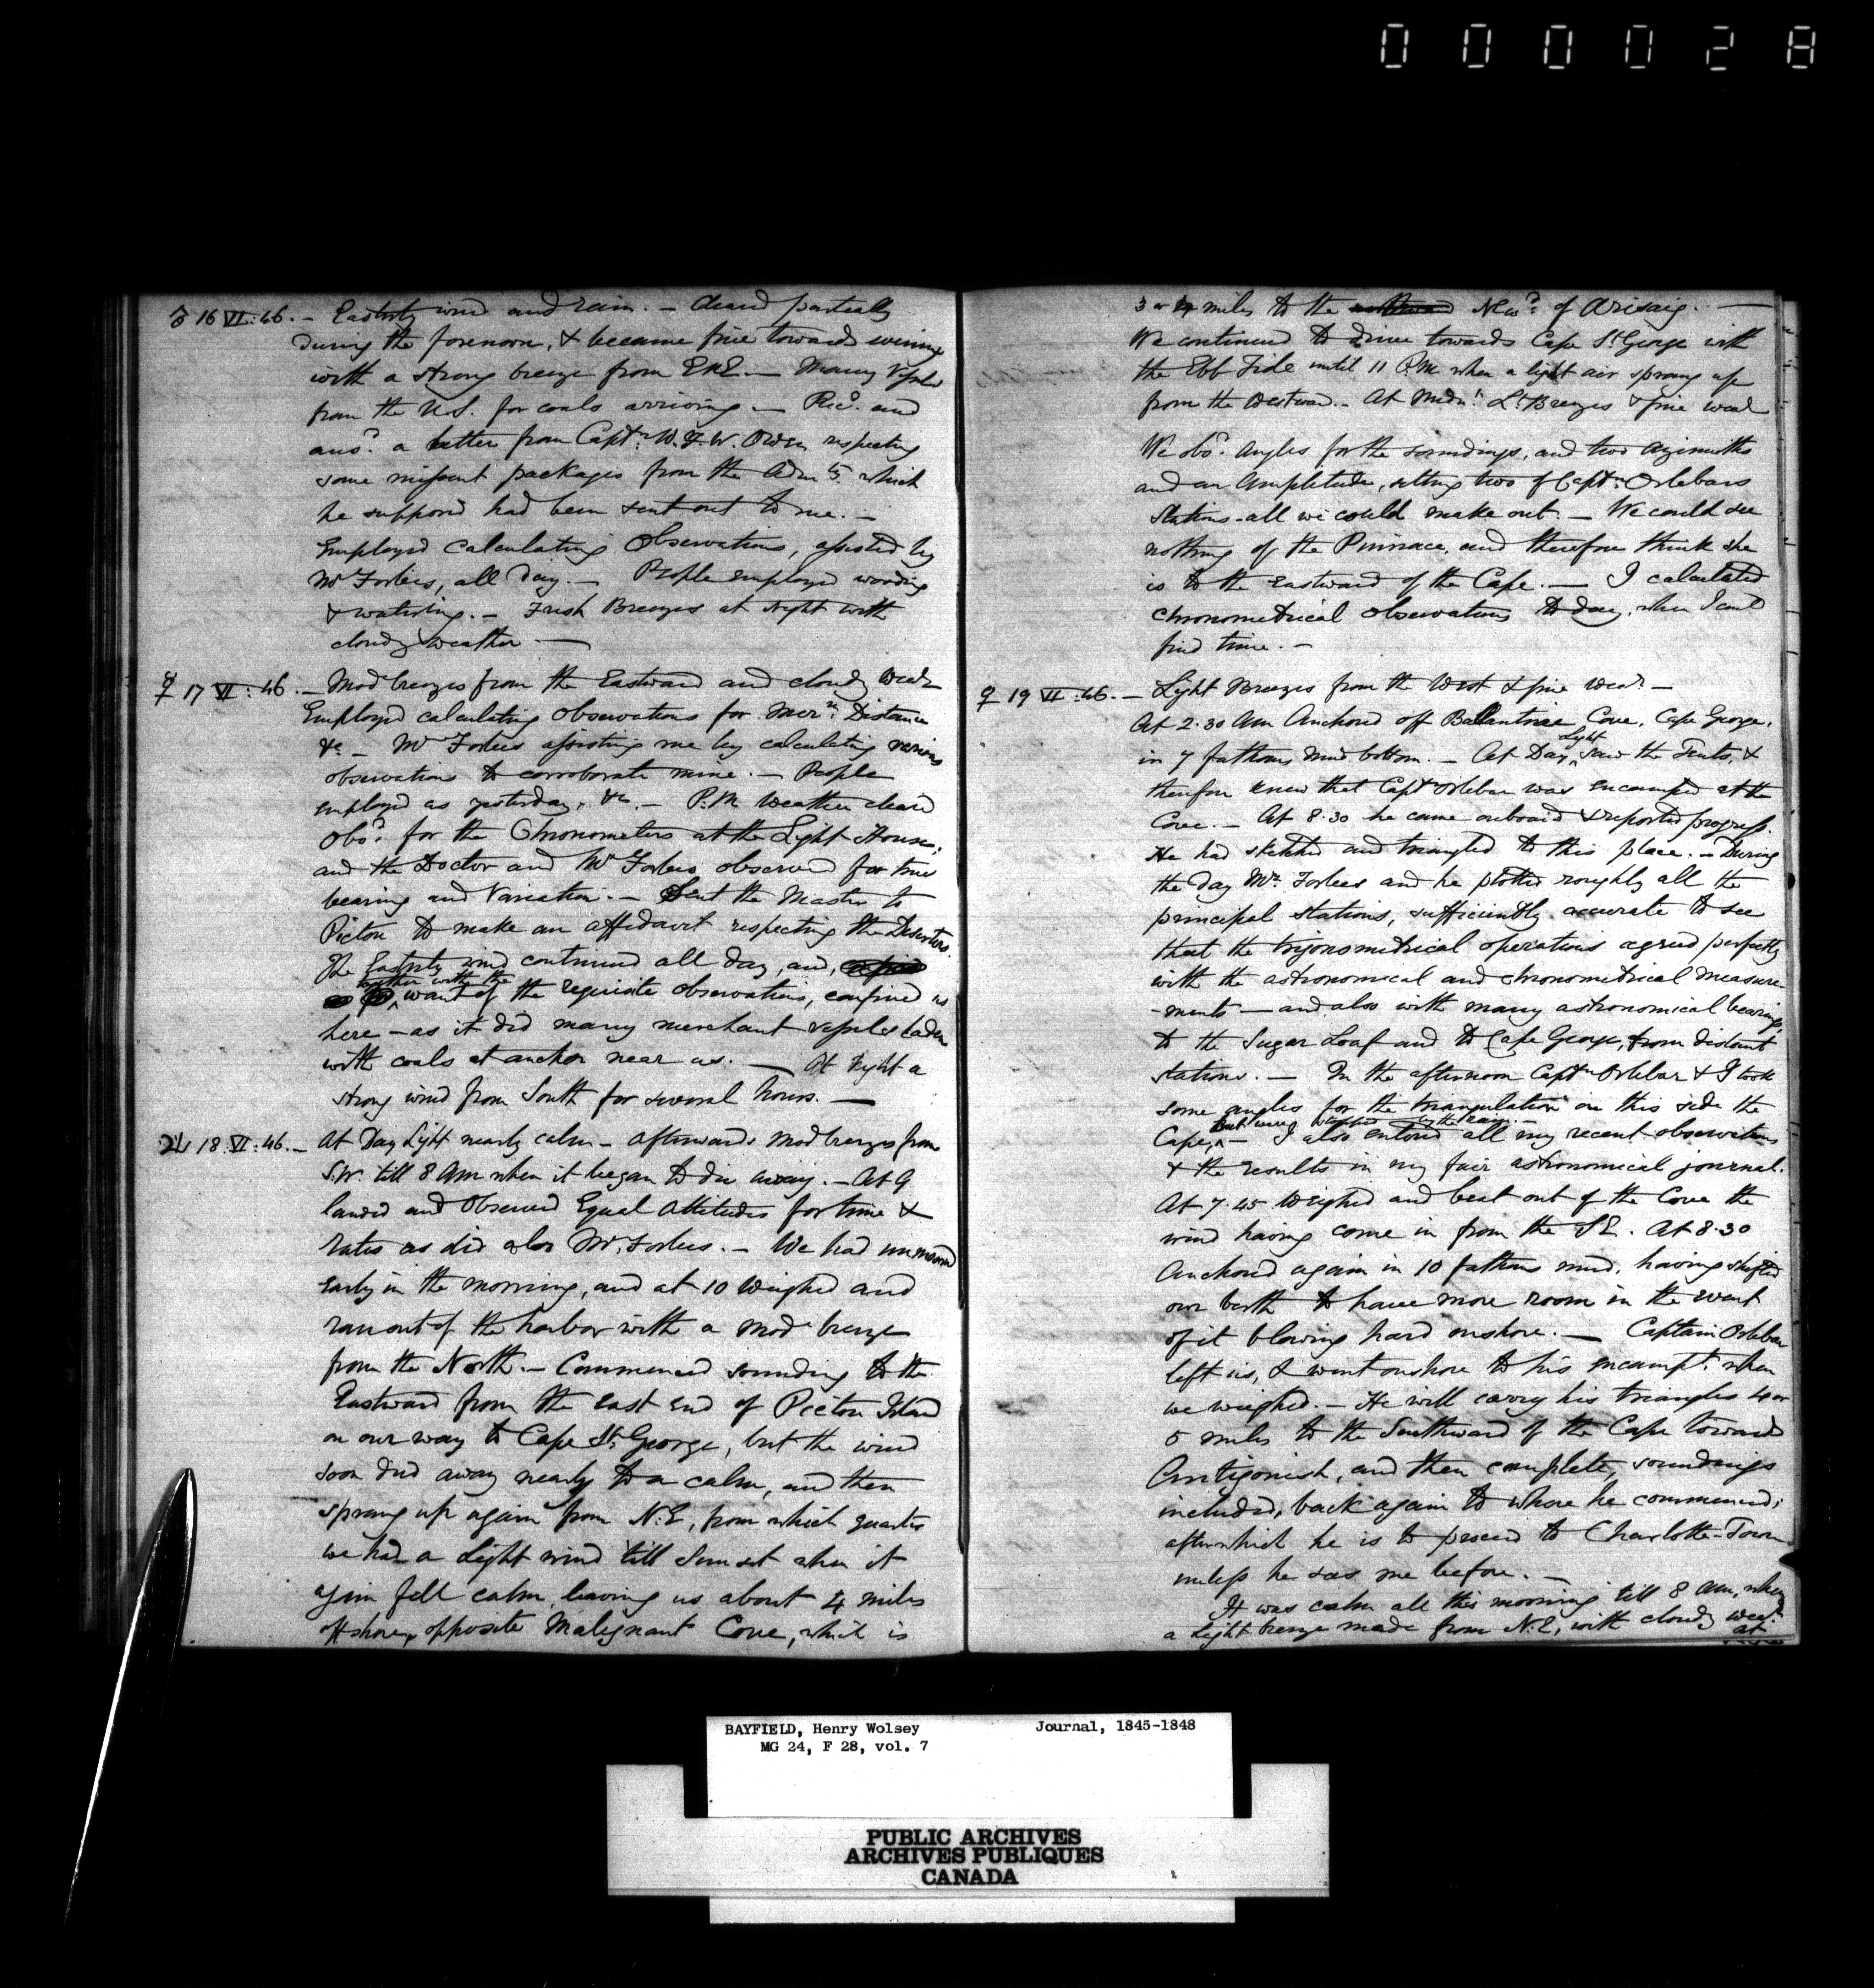 000028
♂ 16 VI : 46. – Easterly wind and rain. – Cleared partially
during the forenoon, & became fine towards evening
with a strong breeze from ENE. – Many Vessels
from the U.S. for coals arriving. – Recd. and
ansd. a letter from Captn. W. F. W. Owen respecting
some missent packages from the Admty. which
he supposed had been sent out to me. –
Employed calculating Observations, assisted by
Mr Forbes, all day. – People employed wooding
& watering. – Fresh Breezes at Night with
cloudy weather –
☿ 17 VI : 46. – Mod breezes from the Eastward and cloudy Wear
Employed calculating Observations for Mern. Distance
&c – Mr Forbes assisting me by calculating various
observations to corroborate mine. – People
employed as yesterday, &c. – P.M. Weather cleared
Obsd. for the Chronometers at the Light House,
and the Doctor and Mr Forbes observed for true
bearing and Variation. – Sent the Master to
Pictou to make an affidavit respecting the Deserters.
The Easterly wind continued all day, and,
together with the
want of the requisite observations, confined us
here – as it did many merchant vessels laden
with coals at anchor near us. – At Night a
strong wind from South for several hours. –
♃ 18 VI : 46. – At Day Light nearly calm – afterwards Mod breezes from
S.W. till 8 AM when it began to die away. – At 9
landed and Observed Equal Altitudes for time &
rates as did also Mr. Forbes. – We had unmoored
early in the morning, and at 10 Weighed and
ran out of the harbor with a Mode breeze
from the North. – Commenced sounding to the
Eastward from the East End of Pictou Island
on our way to Cape St. George, but the wind
soon died away nearly to a calm, and then
sprang up again from N.E, from which quarter
we had a light wind till Sunset when it
again fell calm, leaving us about 4 miles
offshore, opposite Malignant Cove, which is
3 or 4 miles to the NEwd. of Arisaig. –
We continued to drive towards Cape St George with
the Ebb Tide until 11 P.M when a light air sprang up
from the Westward. – At Midnt. Lt. Breezes & fine wear
We obsd. Angles for the soundings, and two azimuths
and an Amplitude, setting two of Captn. Orlebars
Stations – all we could make out. – We could see
nothing of the Pinnace, and therefore think she
is to the Eastward of the Cape. – I calculated
chronometrical observations to day, when I could
find time. –
♀ 19 VI : 46. – Light Breezes from the West & fine Wear. –
At 2.30 AM Anchored off Ballantine Cove, Cape George,
in 7 fathoms Mud bottom. – At Day light saw the Tents, &
therefore knew that Captn Orlebar was encamped at the
Cove. – At 8.30 he came onboard & reported progress.
He had sketched and triangled to this place. – During
the day Mr. Forbes and he plotted roughly all the
principal stations, sufficiently accurate to see
that the trigonometrical operations agreed perfectly
with the astronomical and chronometrical measure-
-ments – and also with many astronomical bearings,
to the Sugar Loaf and to Cape George, from distant
stations. – In the afternoon Captn Orlebar & I took
some angles for the triangulation on this side the
but were stopped by the rain.
Cape, – I also entered all my recent observations
& the results in my fair astronomical journal.
At 7.45 Weighed and beat out of the Cove the
wind having come in from the SE. At 8.30
Anchored again in 10 fathoms mud, having shifted
our berth to have more room in the event
of it blowing hard onshore. – Captain Orlebar
left us, & went onshore to his encampt. when
we weighed. – He will carry his triangles 4 or
5 miles to the Southward of the Cape towards
Antigonish, and then complete, soundings
included, back again to where he commenced;
after which he is to proceed to Charlotte-Town
unless he sees me before. –
It was calm all this morning till 8 AM, when
a light breeze made from N.E, with cloudy wear.
at
BAYFIELD, Henry Wolsey Journal, 1845-1848
MG 24, F 28, vol. 7
PUBLIC ARCHIVES
ARCHIVES PUBLIQUES
CANADA